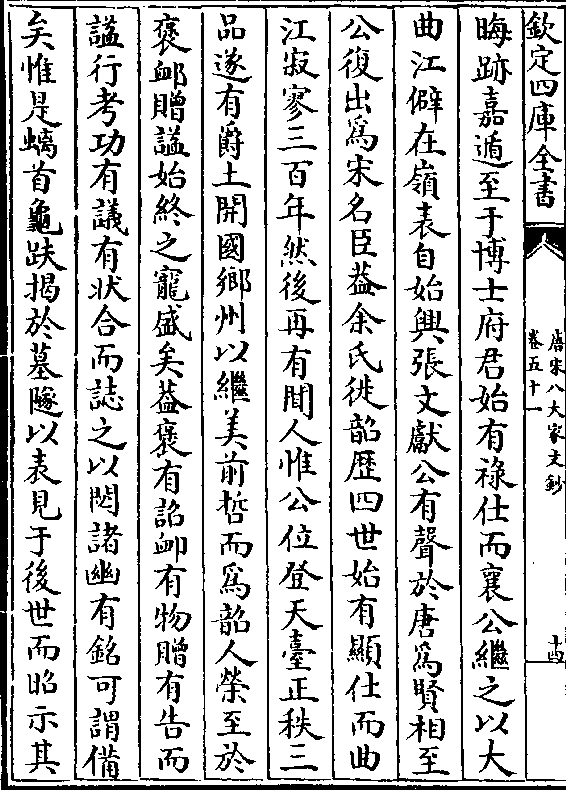 欽定四庫全書
唐宋八大家文鈔
卷五十一
十四
晦跡嘉遁至于博士府君始有祿仕而襄公繼之以大
曲江僻在嶺表自始興張文獻公有聲於唐為賢相至
公復出為宋名臣葢余氏徙韶歴四世始有顯仕而曲
江寂寥三百年然後再有聞人惟公位登天臺正秩三
品遂有爵土開國鄉州以繼美前哲而為韶人榮至於
褒䘏贈諡始終之寵盛矣葢褒有詔䘏有物贈有告而
諡行考功有議有狀合而誌之以閟諸幽有銘可謂備
矣惟是螭首龜趺揭於墓隧以表見于後世而昭示其